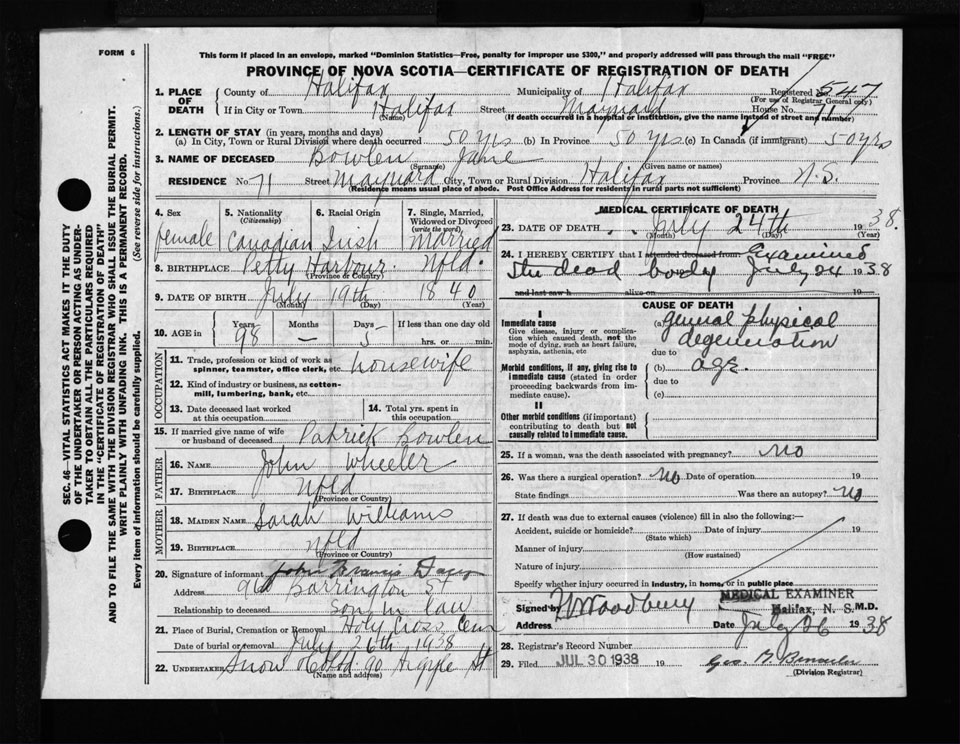 FORM 6
This form if placed in an envelope, marked "Dominion Statistics—Free, penalty for improper use $300," and properly addressed will pass through the mail "FREE"
PROVINCE OF NOVA SCOTIA—CERTIFICATE OF REGISTRATION OF DEATH
1. PLACE OF DEATH
County of Halifax Municipality of Halifax Registered 547
(For use of Registrar General only)
If in City or Town Halifax Street Maynard House No. 71
(Name) (If death occurred in a hospital or institution, give the name instead of street and number)
2. LENGTH OF STAY (in years, months and days)
(a) In City, Town or Rural Division where death occurred 50 yrs (b) In Province 50 yrs (c) In Canada (if immigrant) 50 yrs
3. NAME OF DECEASED Bowlen Jane
(Surname) (Given name or names)
RESIDENCE No. 71 Street Maynard City, Town or Rural Division Halifax Province N.S.
(Residence means usual place of abode. Post Office Address for residents in rural parts not sufficient)
4. Sex female
5. Nationality (Citizenship) Canadian
6. Racial Origin Irish
7. Single, Married, Widowed or Divorced (write the word) Married
8. BIRTHPLACE Petty Harbour. Nfld.
(Province or Country)
9. DATE OF BIRTH July 19th 1840
(Month) (Day) (Year)
10. AGE in Years 98 Months — Days 5 If less than one day old hrs. or min.
OCCUPATION
11. Trade, profession or kind of work as spinner, teamster, office clerk, etc. housewife
12. Kind of industry or business, as cotton-mill, lumbering, bank, etc.
13. Date deceased last worked at this occupation
14. Total yrs. spent in this occupation
15. If married give name of wife or husband of deceased Patrick Bowlen
FATHER
16. NAME John Wheeler
17. BIRTHPLACE Nfld
(Province or Country)
MOTHER
18. MAIDEN NAME Sarah Williams
19. BIRTHPLACE Nfld
(Province or Country)
20. Signature of informant John Francis
Address Barrington St
Relationship to deceased Son in law
21. Place of Burial, Cremation or Removal Holy Cross Cem
Date of burial or removal July 26th, 1938
22. UNDERTAKER Snow & Co Ltd 90 Argyle St
(Name and address)
MEDICAL CERTIFICATE OF DEATH
23. DATE OF DEATH July 24th 1938.
(Month) (Day) (Year)
24. I HEREBY CERTIFY that I attended deceased from Examined
the dead body July 24 1938
and last saw h alive on
CAUSE OF DEATH
I
Immediate cause
Give disease, injury or complication which caused death, not the mode of dying, such as heart failure, asphyxia, asthenia, etc
(a) general physical degeneration
due to
Morbid conditions, if any, giving rise to immediate cause (stated in order proceeding backwards from immediate cause).
(b) age.
due to
(c)
II
Other morbid conditions (if important) contributing to death but not causally related to immediate cause.
25. If a woman, was the death associated with pregnancy? No
26. Was there a surgical operation? No Date of operation 19
State findings Was there an autopsy? No
27. If death was due to external causes (violence) fill in also the following:—
Accident, suicide or homicide? Date of injury 19
(State which)
Manner of injury
(How sustained)
Nature of injury
Specify whether injury occurred in industry, in home, or in public place
MEDICAL EXAMINER
Signed by Woodbury Halifax, N. S. M.D.
Address Date July 26 1938
28. Registrar's Record Number
29. Filed JUL 30 1938 19
(Division Registrar)
SEC. 46 VITAL STATISTICS ACT MAKES IT THE DUTY
OF THE UNDERTAKER OR PERSON ACTING AS UNDER-
TAKER TO OBTAIN ALL THE PARTICULARS REQUIRED
IN THE "CERTIFICATE OF REGISTRATION OF DEATH"
AND TO FILE THE SAME WITH THE DIVISION REGISTRAR WHO SHALL ISSUE THE BURIAL PERMIT.
WRITE PLAINLY WITH UNFADING INK. THIS IS A PERMANENT RECORD.
Every item of information should be carefully supplied. (See reverse side for instructions.)